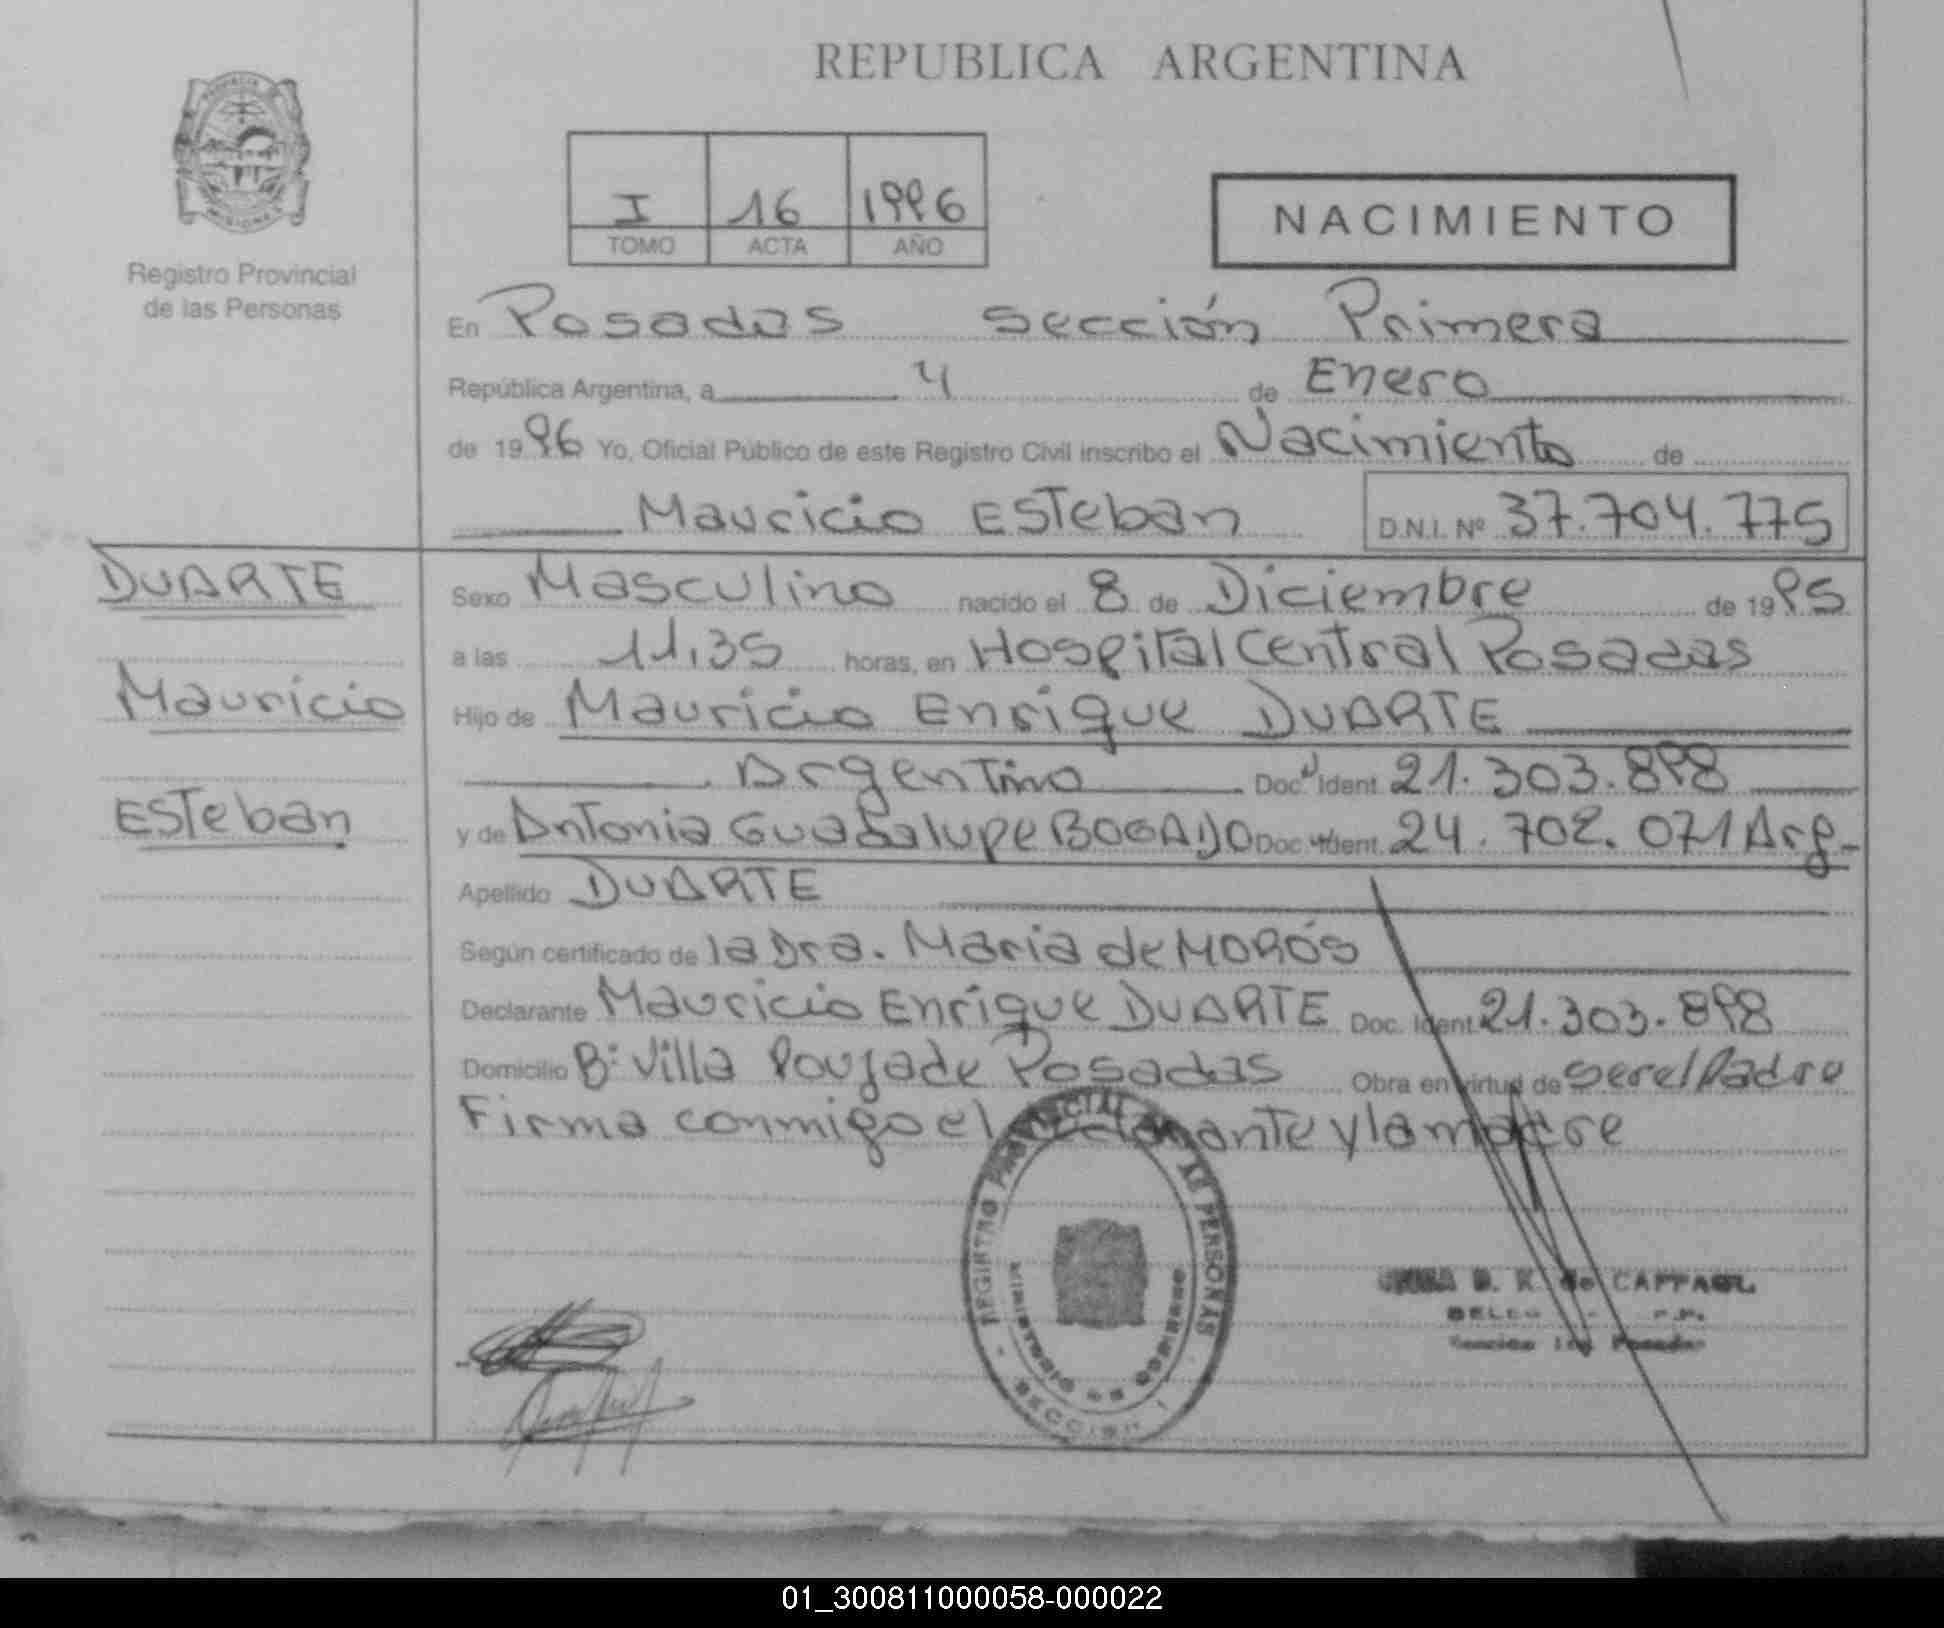 REPUBLICA ARGENTINA
PROVINCIA
MISIONES
Registro Provincial
de las Personas
I 16 1996
TOMO ACTA AÑO
NACIMIENTO
En Posadas Sección Primera
República Argentina, a 4 de Enero
de 1996 Yo, Oficial Público de este Registro Civil inscribo el Nacimiento de
Mauricio Esteban D.N.I. Nº 37.704.775
DUARTE
Mauricio
Esteban
Sexo Masculino nacido el 8 de Diciembre de 1995
a las 11,35 horas, en Hospital Central Posadas
Hijo de Mauricio Enrique DUARTE
Argentino Doc. Ident. 21.303.898
y de Antonia Guadalupe BOGADO Doc. Ident. 24.702.071 Arg.
Apellido DUARTE
Según certificado de la Dra. Maria de MOROS
Declarante Mauricio Enrique DUARTE Doc. Ident. 21.303.898
Domicilio Bº Villa Poujade Posadas Obra en virtud de ser el Padre
Firma conmigo el declarante y la madre
REGISTRO PROVINCIAL DE LAS PERSONAS
MINISTERIO DE GOBIERNO
SECCION 1
de CAFFAREL
Sección 1ra Posadas
01_300811000058-000022